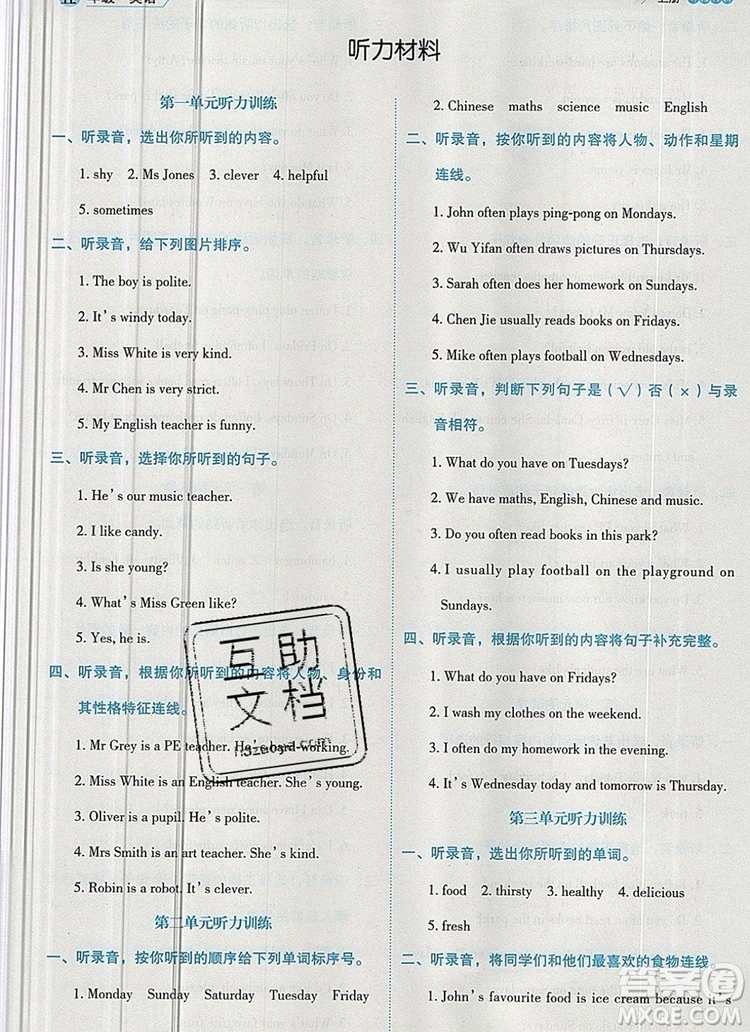 年级 英语
上册
听力材料
第一单元听力训练
一、听录音，选出你所听到的内容。
1. shy 2. Ms Jones 3. clever 4. helpful
5. sometimes
二、听录音，给下列图片排序。
1. The boy is polite.
2. It's windy today.
3. Miss White is very kind.
4. Mr Chen is very strict.
5. My English teacher is funny.
三、听录音，选择你所听到的句子。
1. He's our music teacher.
2. I like candy.
3. Is she young?
4. What's Miss Green like?
5. Yes, he is.
四、听录音，根据你所听到的内容将人物、身份和
其性格特征连线。
1. Mr Grey is a PE teacher. He is hard-working.
2. Miss White is an English teacher. She's young.
3. Oliver is a pupil. He's polite.
4. Mrs Smith is an art teacher. She's kind.
5. Robin is a robot. It's clever.
第二单元听力训练
一、听录音，按你听到的顺序给下列单词标序号。
1. Monday Sunday Saturday Tuesday Friday
2. Chinese maths science music English
二、听录音，按你听到的内容将人物、动作和星期
连线。
1. John often plays ping-pong on Mondays.
2. Wu Yifan often draws pictures on Thursdays.
3. Sarah often does her homework on Sundays.
4. Chen Jie usually reads books on Fridays.
5. Mike often plays football on Wednesdays.
三、听录音，判断下列句子是（√）否（×）与录
音相符。
1. What do you have on Tuesdays?
2. We have maths, English, Chinese and music.
3. Do you often read books in this park?
4. I usually play football on the playground on
Sundays.
四、听录音，根据你听到的内容将句子补充完整。
1. What do you have on Fridays?
2. I wash my clothes on the weekend.
3. I often do my homework in the evening.
4. It's Wednesday today and tomorrow is Thursday.
第三单元听力训练
一、听录音，选出你所听到的单词。
1. food 2. thirsty 3. healthy 4. delicious
5. fresh
二、听录音，将同学们和他们最喜欢的食物连线。
1. John's favourite food is ice cream because it's
互助
文档
h.szebard.com
答案圈
MXQE.COM